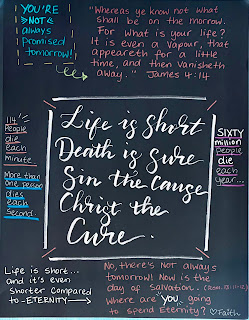 YOU'RE
>NOT<
always
Promised
tomorrow!
"Whereas ye know not what
shall be on the morrow.
For what is your life?
It is even a Vapour, that
appeareth for a little
time, and then Vanisheth
away." James 4:14
114
People
die
each
minute...
More than
one person
dies
each
second.
Life is short
Death is sure
Sin the Cause
Christ the
Cure.
SIXTY
million
people
die
each
year...
Life is short...
and it's even
shorter Compared
to -ETERNITY→
No, there's NOT always
tomorrow! Now is the
day of Salvation.
Where are you going
to spend Eternity? ♡Faith